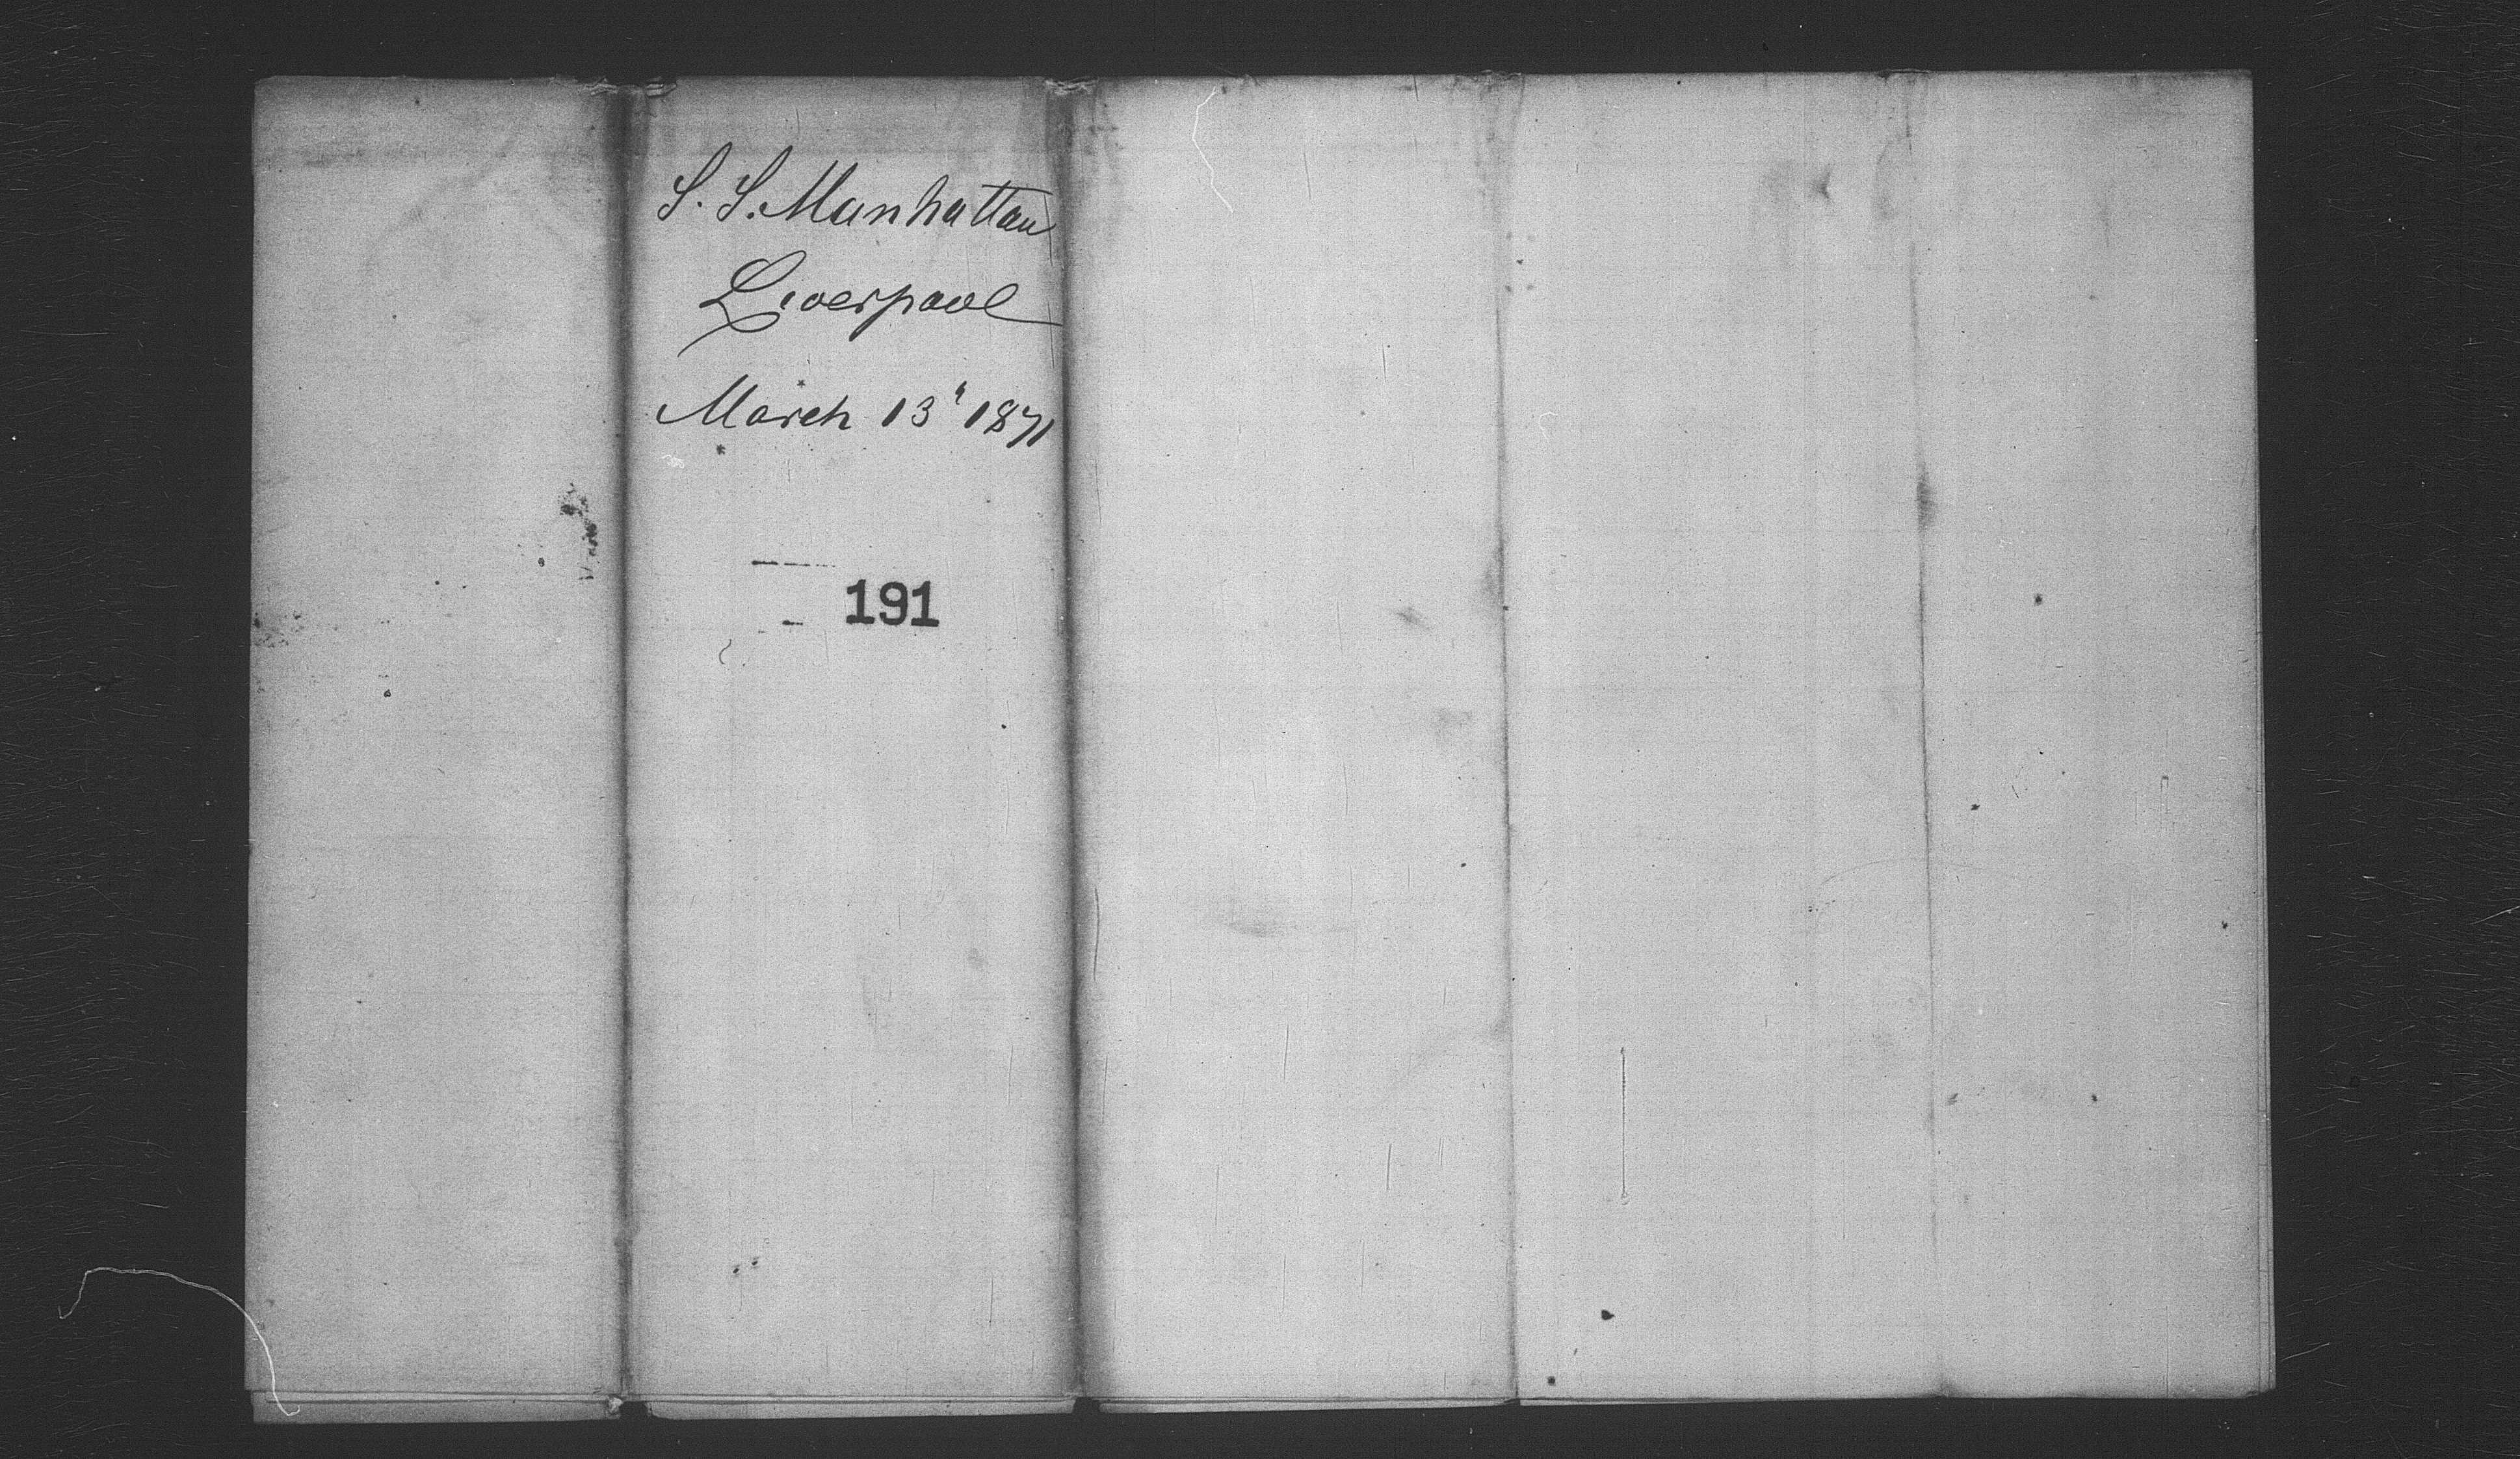 S. S. Manhattan
Liverpool
March 13h 1871
191